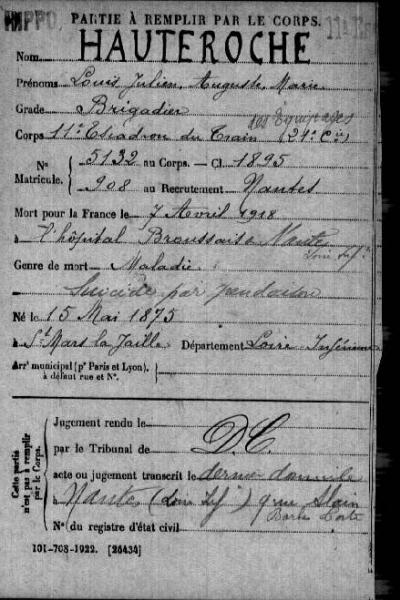 PARTIE À REMPLIR PAR LE CORPS.
HAUTEROCHE
Nom
Prénoms Louis Julien, Auguste, Marie
Grade Brigadier
des Equipages
Corps 11e Escadron du Train (21e Cie)
Nos Matricule. 5132 au Corps. — Cl. 1895
908 au Recrutement Nantes
Mort pour la France le 7 Avril 1918
à l'hôpital Broussais Nantes
Loire Infre
Genre de mort Maladie
Suicide par pendaison
Né le 15 Mai 1875
à St Mars la Jaille Département Loire Inférieure
Arrt municipal (pr Paris et Lyon), à défaut rue et No.
Cette partie n'est pas à remplir par le Corps.
Jugement rendu le
par le Tribunal de D.C.
acte ou jugement transcrit le dernier domicile
Nantes (Loire Infre) 9 rue Alain
Barbe Torte
No du registre d'état civil
101-708-1922. [26434]